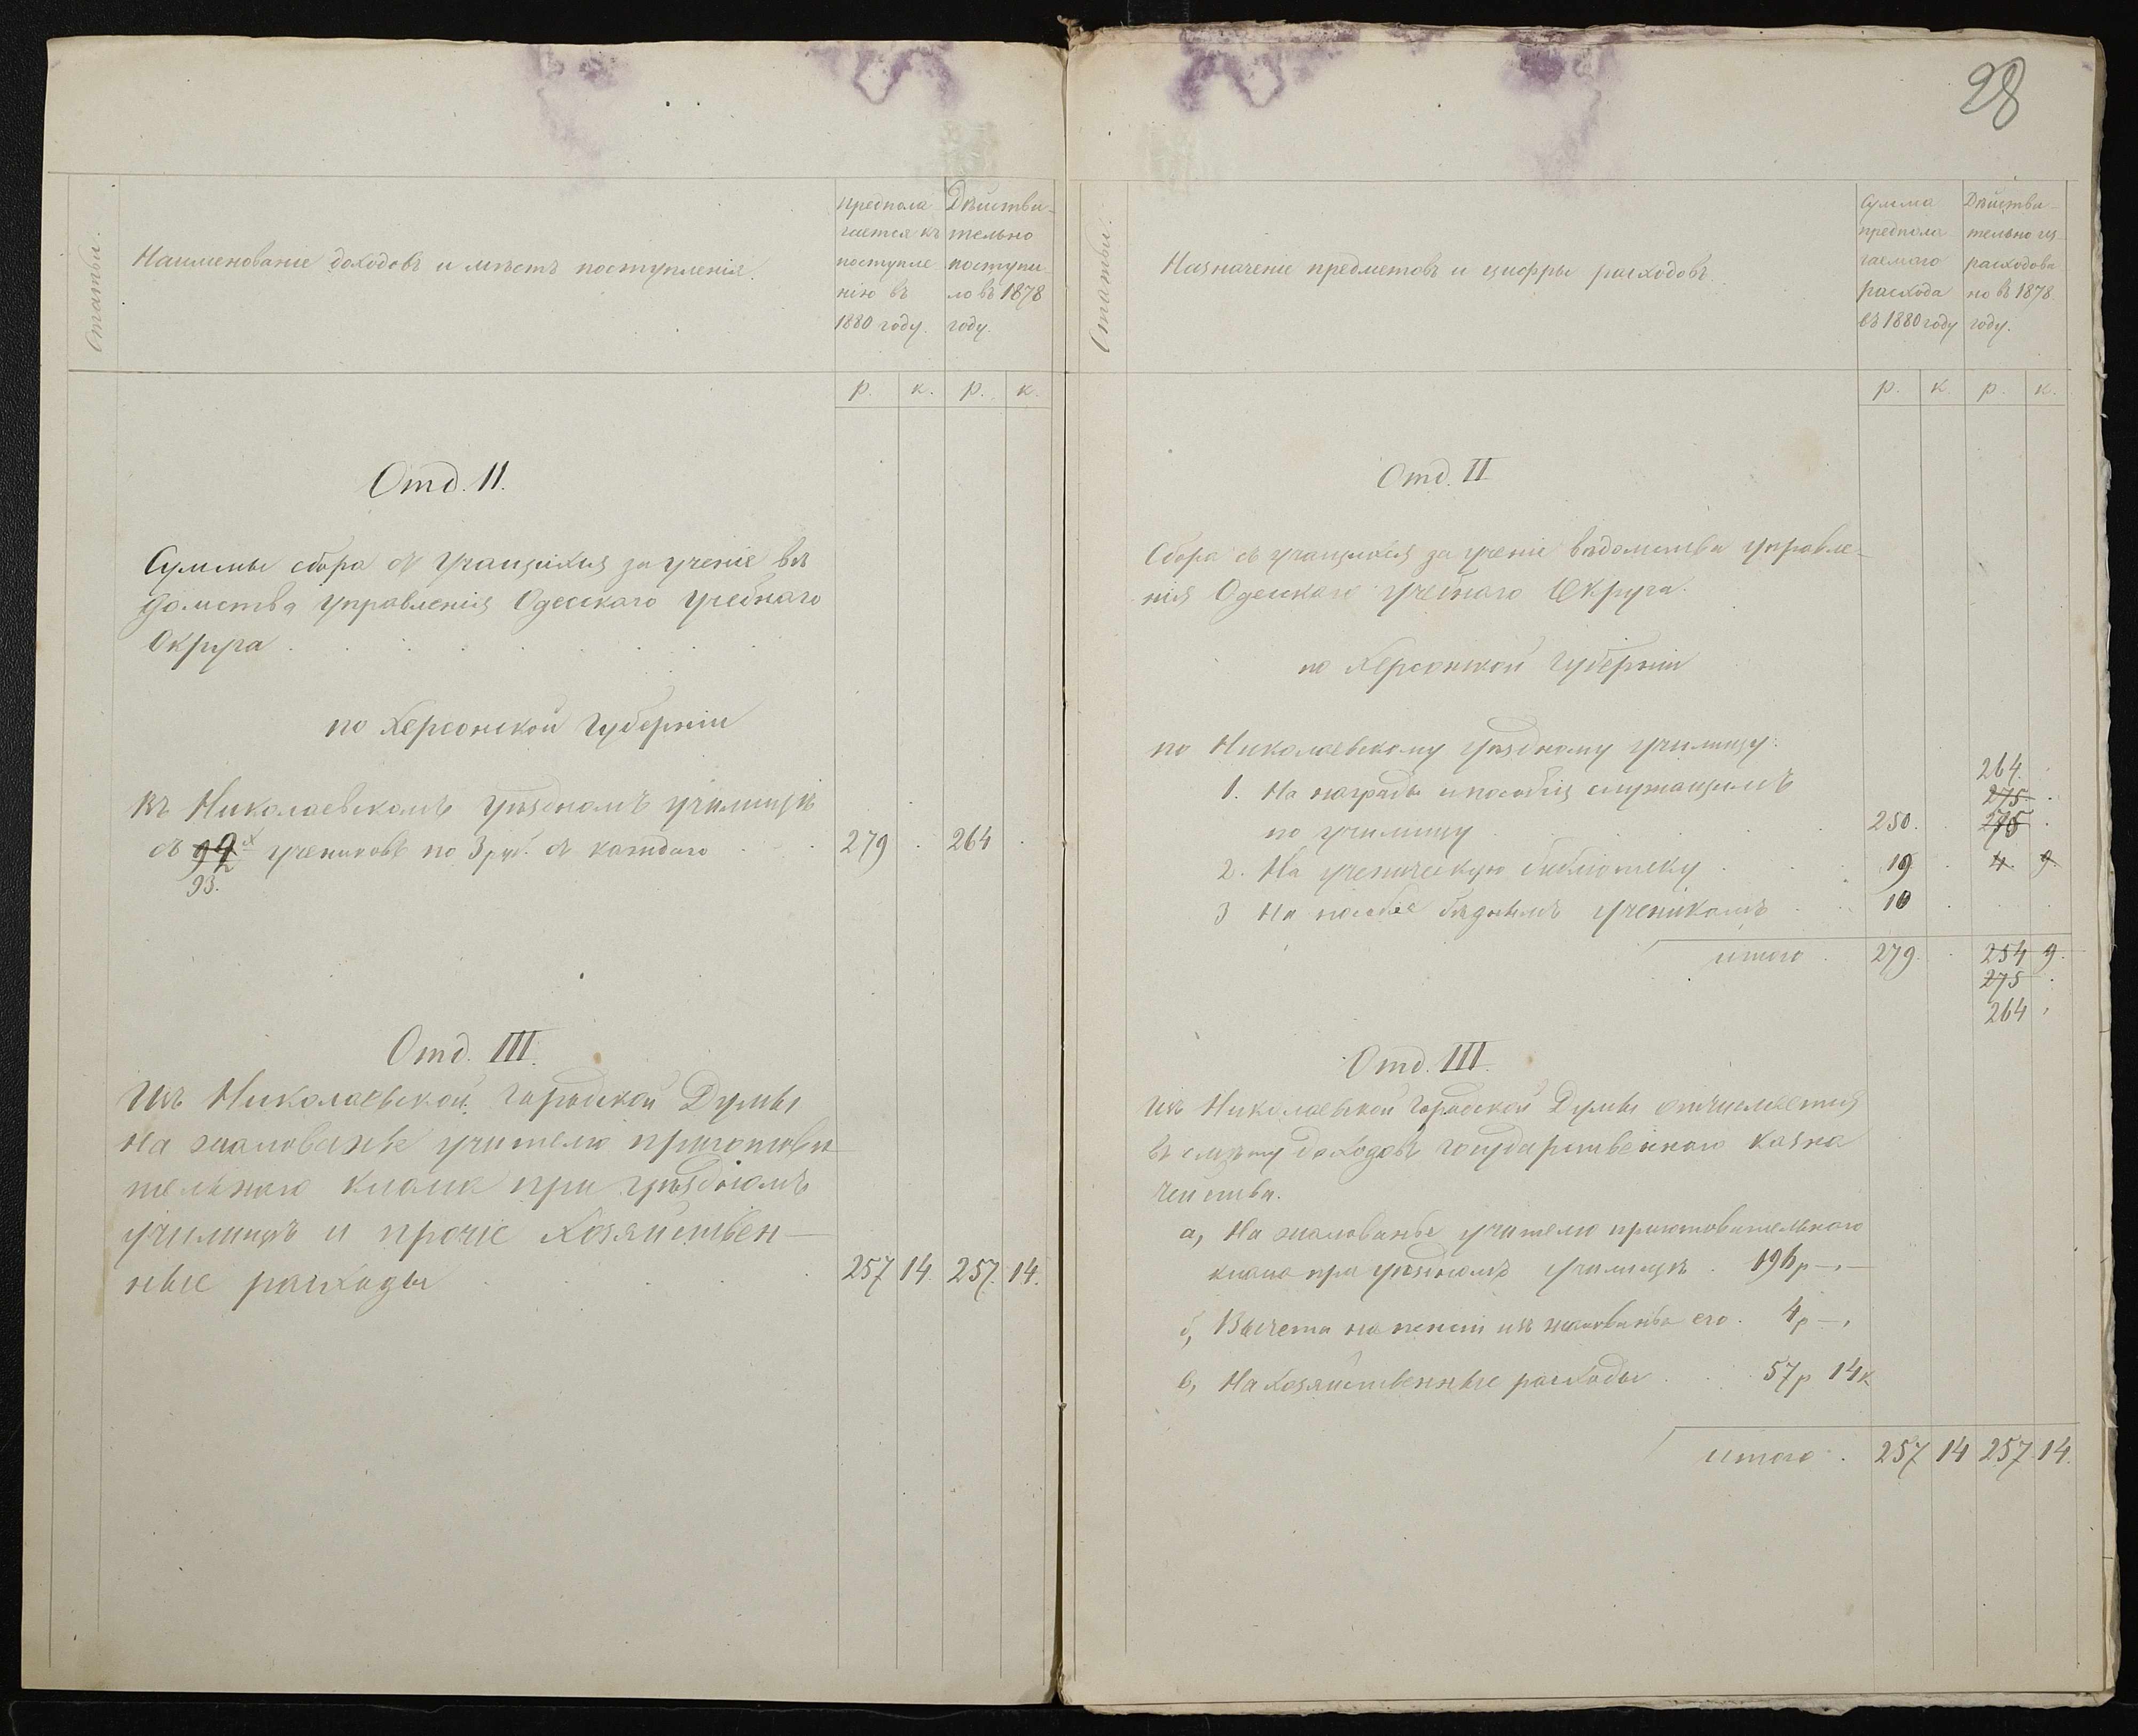 28
Статьи.
Наименованіе доходовъ и мѣстъ поступленія.
Предпола-
гается къ
поступле
нію въ
1880 году.
Дѣйстви-
тельно
поступи-
ло въ 1878
году.
р. к. р. к.
Отд. II.
Суммы сбора съ учащихся за ученіе вѣ
домства управленія Одесскаго учебнаго
Округа
по Херсонской Губерніи
Въ Николаевскомъ уѣздномъ училищѣ
съ учениковъ по 3 руб. съ каждаго 279 264
93.
Отд. III.
Изъ Николаевской Городской Думы
на жалованье учителю приготови-
тельнаго класса при уѣздномъ
училищѣ и прочіе хозяйствен-
ные расходы 257 14. 257. 14.
Статьи.
Назначеніе предметовъ и цифры расходовъ.
Сумма
предпола
гаемаго
расхода
въ 1880 году
Дѣйстви-
тельно из-
расходова
но въ 1878
году.
р. к. р. к.
Отд. II
Сбора съ учащихся за ученіе вѣдомства управле-
нія Одесскаго учебнаго Округа.
по Херсонской Губерніи
по Николаевскому уѣздному училищу.
264.
1. На награды и пособія служащимъ 275
по училищу 250. 275
2. На ученическую библіотеку 19 4. 9.
3 На пособіе бѣднымъ ученикамъ 10
итого 279. 254 9.
275
264
Отд. III.
Изъ Николаевской Городской Думы отчисляется
въ смѣту доходовъ государственнаго казна
чейства.
а, На жалованье учителю приготовительнаго
класса при уѣздномъ училищѣ 196 р —
б, Вычета на пенсіи изъ жалованья его. 4 р —
в, На хозяйственные расходы 57 р 14 к
итого 257 14 257. 14.